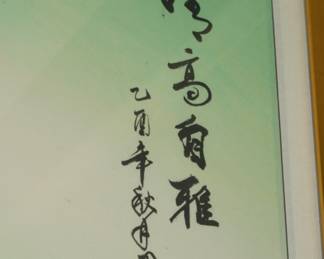 高自雅
乙酉年秋月